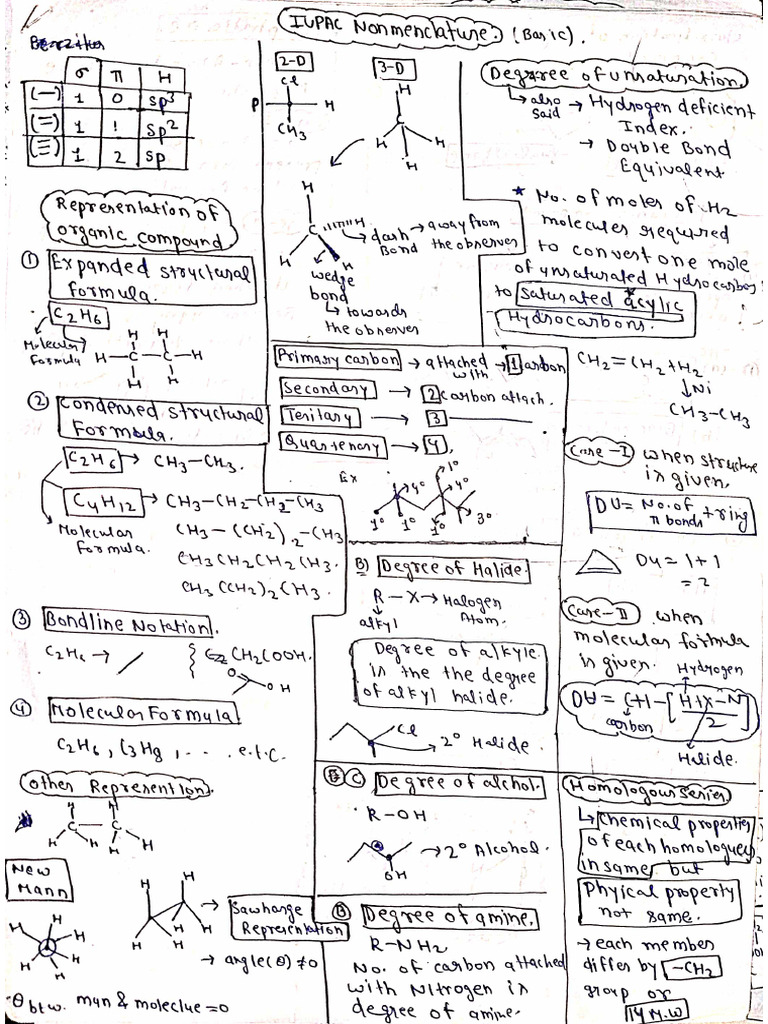 IUPAC Nonmenclature. (Basic).
σ π H
(—) 1 0 sp3
(=) 1 1 sp2
(≡) 1 2 sp
Representation of
organic compound
① Expanded structural
formula.
C2H6
Molecular
Formula
H H
H—C—C—H
H H
② Condensed structural
Formula.
C2H6 → CH3—CH3.
C4H12 → CH3—CH2—CH2—CH3
CH3—(CH2)2—CH3
CH3CH2CH2CH3.
CH3(CH2)2CH3.
Molecular
Formula.
③ Bondline Notation.
C2H6 →
CH2COOH.
O
OH
④ Molecular Formula
C2H6, C3H8, .... e.t.c.
Other Represention.
H H
C—C
H H H H
New
Mann
H H
H H
H H
H H
H
H H
→ Sawharge
Representation
→ angle(θ) ≠0
θ btw. man & moleclue =0
2-D
Cl
H
CH3
3-D
H
C
H H
H
H
C H
H H
→ dash → away from
Bond the observer
wedge
bond
↳ towards
the observer
Primary carbon → attached with 1 carbon
Secondary → 2 carbon attach.
Teritary → 3
Quarternary → 4,
Ex
1° 4° 4°
1° 1° 1° 3°
B) Degree of Halide
R—X → Halogen
Atom.
alkyl
Degree of alkyle
is the the degree
of alkyl halide.
Cl
2° Halide.
C Degree of alchol.
R—OH
OH
→ 2° Alcohol.
Degree of amine.
R—NH2
No. of carbon attached
with Nitrogen is
degree of amine.
Degree of unsaturation.
↳ also
said → Hydrogen deficient
Index.
→ Double Bond
Equivalent
* No. of moles of H2
molecules required
to convert one mole
of unsaturated Hydrocarbon
to saturated acylic
Hydrocarbons.
CH2=CH2+H2
↓Ni
CH3—CH3
Case-I when structure
is given.
DU= No. of π bonds + ring
DU=1+1
=2
Case-II when
molecular formula
is given.
Hydrogen
DU = C+1-[H+X-N/2]
carbon
Halide.
Homologous series
↳ Chemical properties
of each homologues
in same but
Phyical property
not same.
→ each member
differ by —CH2
group or
14 M.W